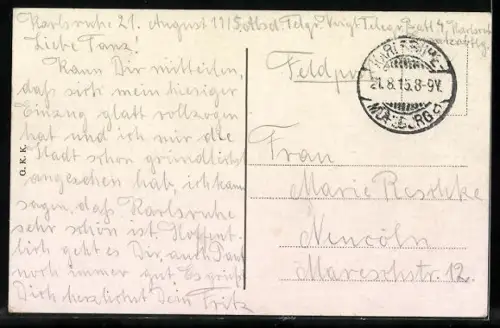 Karlsruhe 21. August 1915. Absd. Telgr. Voigt Telegr. Batl 4, Karlsruhe
Liebe Tanz!
Kann Dir mitteilen,
daß sich mein hiesiger
Einzug glatt vollzogen
hat und ich mir die
Stadt schon gründlichst
angesehen hab, ich kann
sagen, daß Karlsruhe
sehr schön ist. Hoffent-
lich geht es Dir, auch
noch immer gut Es grüßt
Dich herzlichst Dein Fritz
O. K. K.
Feldpost
KARLSRUHE
21.8.15.8-9V.
MÜHLBURG
Frau
Marie Reschke
Neucöln
Mareschstr. 12.